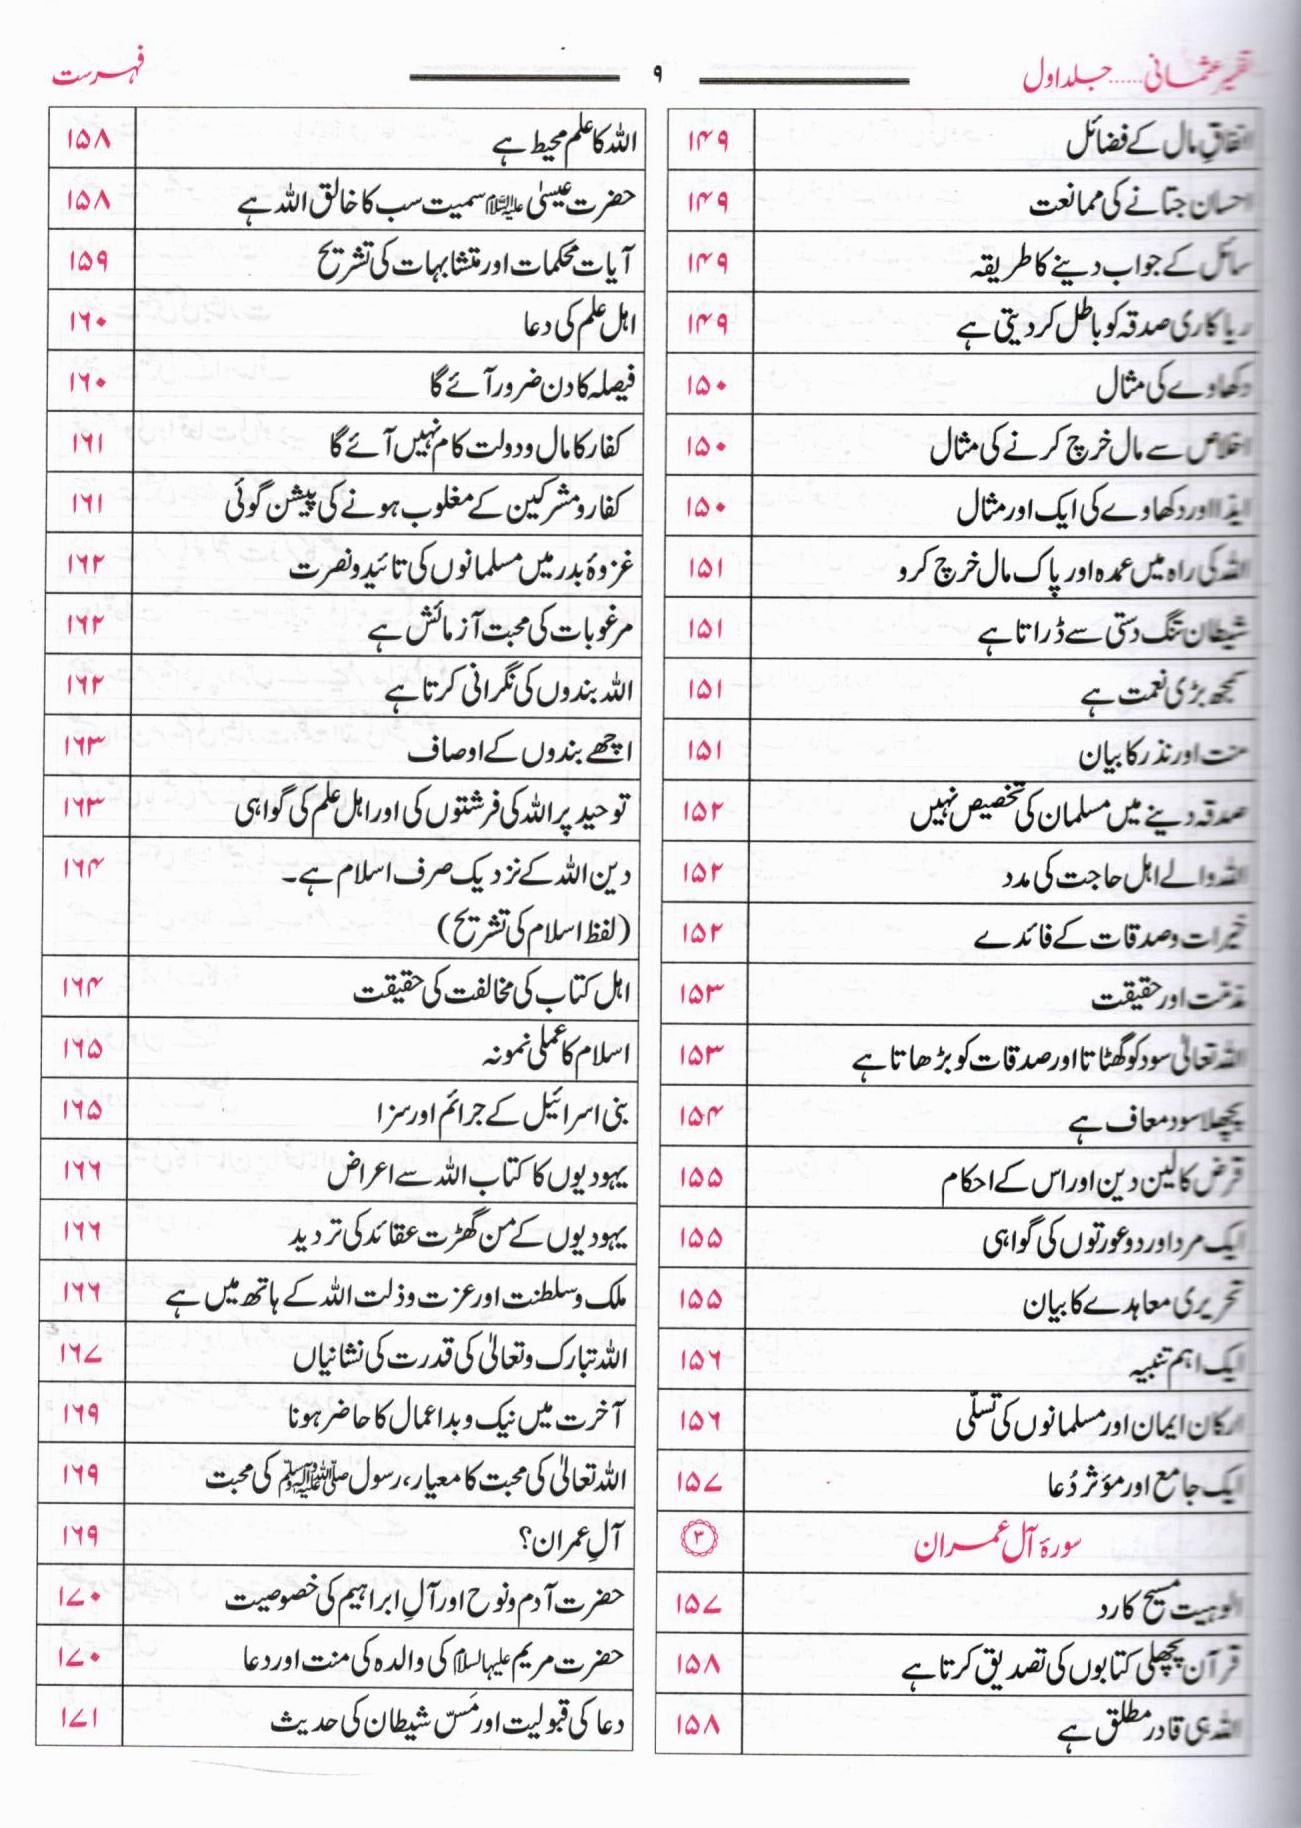 تفسیر عثمانی......جلد اول
۹
فہرست
انفاقِ مال کے فضائل ۱۴۹
احسان جتانے کی ممانعت ۱۴۹
سائل کے جواب دینے کا طریقہ ۱۴۹
ریاکاری صدقہ کو باطل کر دیتی ہے ۱۴۹
دکھاوے کی مثال ۱۵۰
اخلاص سے مال خرچ کرنے کی مثال ۱۵۰
ایذا اور دکھاوے کی ایک اور مثال ۱۵۰
اللہ کی راہ میں عمدہ اور پاک مال خرچ کرو ۱۵۱
شیطان تنگ دستی سے ڈراتا ہے ۱۵۱
سمجھ بڑی نعمت ہے ۱۵۱
منت اور نذر کا بیان ۱۵۱
صدقہ دینے میں مسلمان کی تخصیص نہیں ۱۵۲
اللہ والے اہل حاجت کی مدد ۱۵۲
خیرات وصدقات کے فائدے ۱۵۲
اور حقیقت ۱۵۳
اللہ تعالیٰ سود کو گھٹاتا اور صدقات کو بڑھاتا ہے ۱۵۳
پچھلا سود معاف ہے ۱۵۴
قرض کا لین دین اور اس کے احکام ۱۵۵
ایک مرد اور دو عورتوں کی گواہی ۱۵۵
تحریری معاہدے کا بیان ۱۵۵
ایک اہم تنبیہ ۱۵۶
ارکان ایمان اور مسلمانوں کی تسلّی ۱۵۶
ایک جامع اور مؤثر دُعا ۱۵۷
سورۂ آل عمران ۳
الوہیت مسیح کا رد ۱۵۷
قرآن پچھلی کتابوں کی تصدیق کرتا ہے ۱۵۸
اللہ ہی قادر مطلق ہے ۱۵۸
اللہ کا علم محیط ہے ۱۵۸
حضرت عیسیٰ علیہ السلام سمیت سب کا خالق اللہ ہے ۱۵۸
آیات محکمات اور متشابہات کی تشریح ۱۵۹
اہل علم کی دعا ۱۶۰
فیصلہ کا دن ضرور آئے گا ۱۶۰
کفار کا مال و دولت کام نہیں آئے گا ۱۶۱
کفار و مشرکین کے مغلوب ہونے کی پیشن گوئی ۱۶۱
غزوۂ بدر میں مسلمانوں کی تائید و نصرت ۱۶۲
مرغوبات کی محبت آزمائش ہے ۱۶۲
اللہ بندوں کی نگرانی کرتا ہے ۱۶۲
اچھے بندوں کے اوصاف ۱۶۳
توحید پر اللہ کی فرشتوں کی اور اہل علم کی گواہی ۱۶۳
دین اللہ کے نزدیک صرف اسلام ہے۔ ۱۶۴
(لفظ اسلام کی تشریح)
اہل کتاب کی مخالفت کی حقیقت ۱۶۴
اسلام کا عملی نمونہ ۱۶۵
بنی اسرائیل کے جرائم اور سزا ۱۶۵
یہودیوں کا کتاب اللہ سے اعراض ۱۶۶
یہودیوں کے من گھڑت عقائد کی تردید ۱۶۶
ملک و سلطنت اور عزت و ذلت اللہ کے ہاتھ میں ہے ۱۶۶
اللہ تبارک وتعالیٰ کی قدرت کی نشانیاں ۱۶۷
آخرت میں نیک و بد اعمال کا حاضر ہونا ۱۶۹
اللہ تعالیٰ کی محبت کا معیار، رسول ﷺ کی محبت ۱۶۹
آلِ عمران؟ ۱۶۹
حضرت آدم و نوح اور آلِ ابراہیم کی خصوصیت ۱۷۰
حضرت مریم علیہا السلام کی والدہ کی منت اور دعا ۱۷۰
دعا کی قبولیت اور مَسّ شیطان کی حدیث ۱۷۱